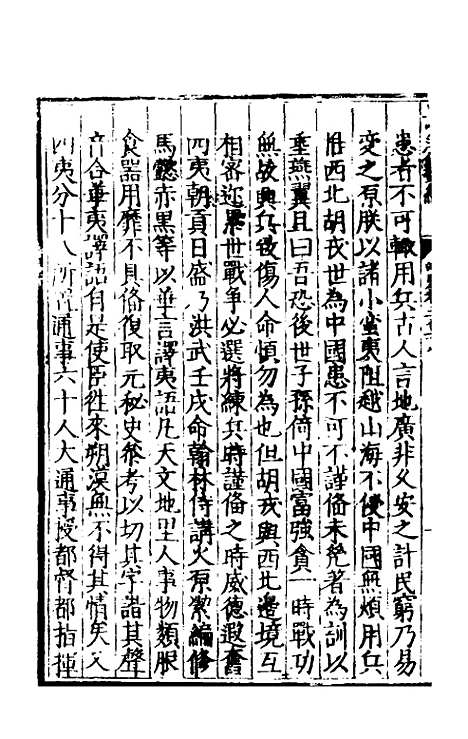 患者不可輙用兵古人言地廣非久安之計民窮乃易
変之原朕以諸小蛮夷阻越山海不侵中國無煩用兵
惟西北胡戎世為中國患不可不謹俻未免著為訓以
垂燕翼且曰吾恐後世子孫倚中國富強貪一時戰功
無故興兵致傷人命慎勿為也但胡戎與西北邊境互
相密迩累世戰争必選將練兵時謹俻之時威德遐
四夷朝貢日盛乃洪武壬戌命翰林侍講火原潔編修
馬懿赤黑等以華言譯夷語凡天文地理人事物類服
食器用靡不具俻復取元秘史叅考以切其字諧其聲
音合華夷譯語自是使臣徃來朔漠無不得其情矣
四夷分十八所司通事六十人大通事授都督都指揮